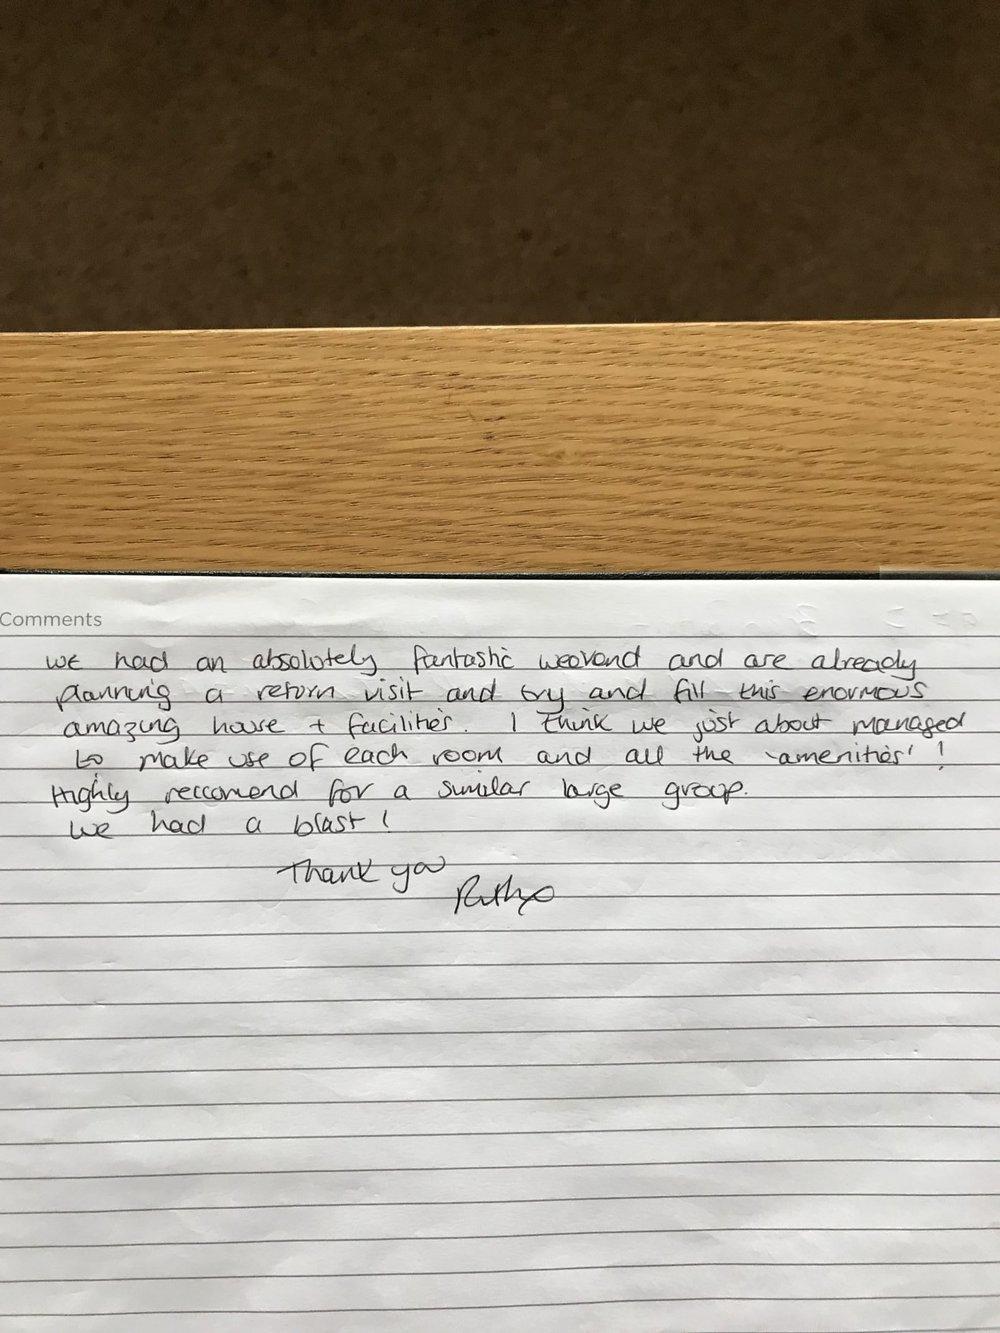 Comments
we had an absolutely fantastic weekend and are already
planning a return visit and try and fill this enormous
amazing house + facilities. I think we just about managed
to make use of each room and all the 'amenities' !
Highly reccomend for a similar large group.
We had a blast!
Thank you